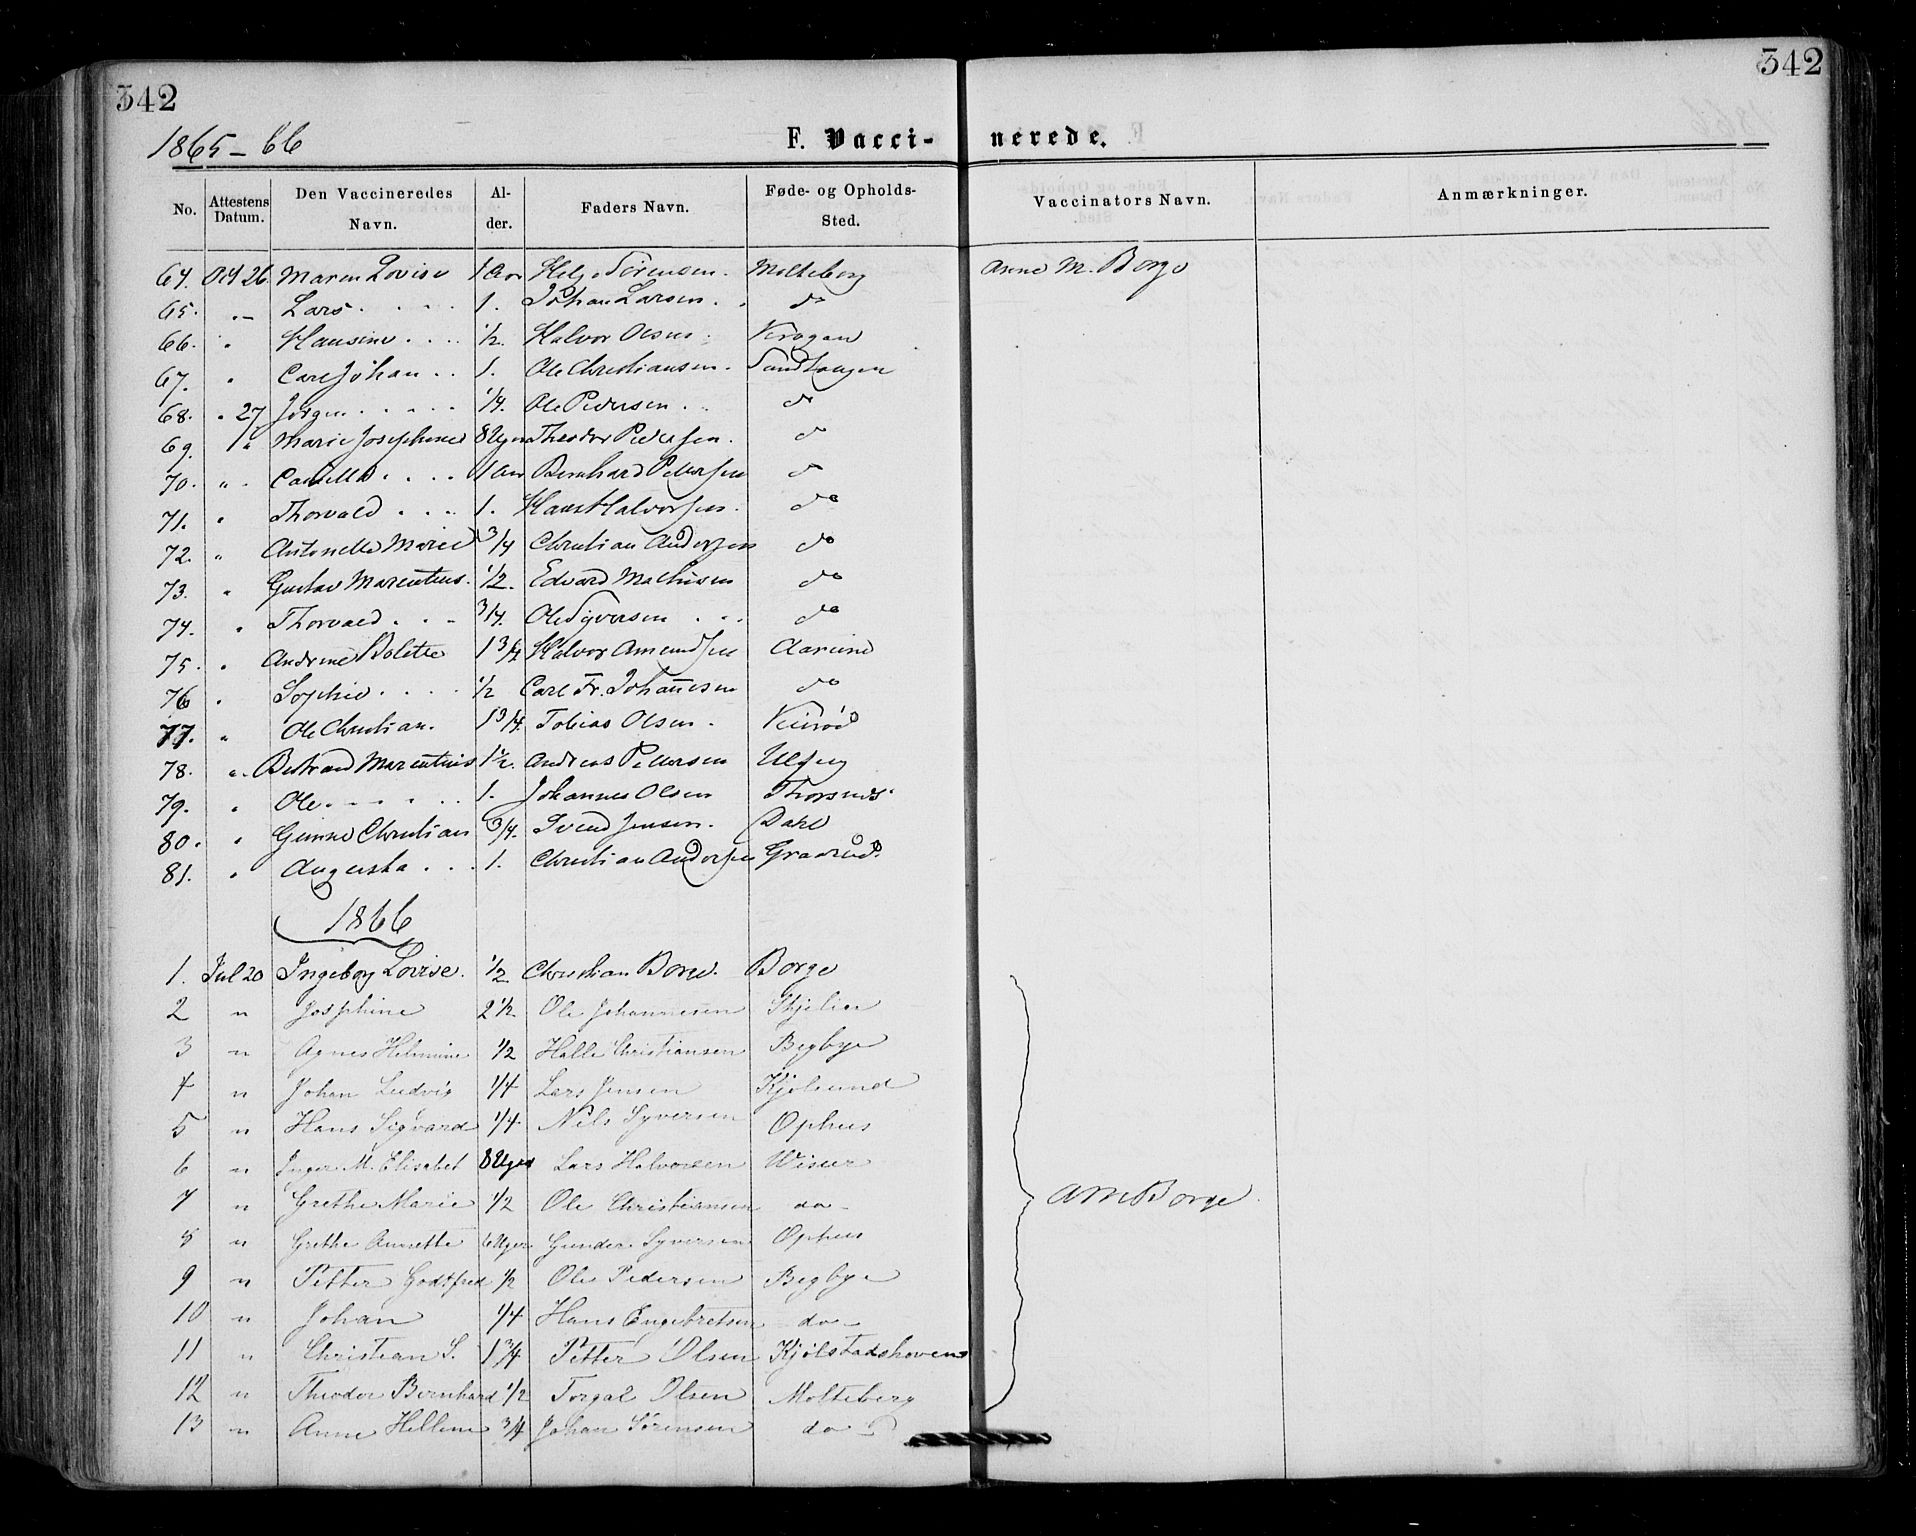 342 342
1865-66 F. Vacci- nerede.
No. Attestens Datum. Den Vaccineredes Navn. Al-der. Faders Navn. Føde- og Opholds-Sted. Vaccinators Navn. Anmærkninger.
64. Oct 26. Maren Lovise 1 Aar Helge Sörensen. Molteberg Anne M. Borge
65. „ Lars . . . . 1. Johan Larsen. . do
66. „ Hansine . . . . 1/2. Halvor Olsen. Krogen
67. „ Carl Johan . . 1. Ole Christiansen. Sandtangen
68. „ 27 Jörgen . . . . . 1/4. Ole Pedersen . . do
69. „ Marie Josephine 8 Uger Theodor Pedersen. do
70. „ Camilla . . . . 1 Aar Bernhard Pettersen do
71. „ Thorvald . . . . 1. Hans Halvorsen. do
72. „ Antonette Marie 3/4 Christian Andersen do
73. „ Gustav Marentius. 1/2. Edvard Mathisen do
74. „ Thorvald . . . 3/4. Ole Syversen . . . do
75. „ Andrine Bolette 1 3/4 Halvor Amundsen
76 „ Sophie . . . . 1/2 Carl Fr. Johannesen do
77. „ Ole Christian. 1 3/4. Tobias Olsen .
78. „ Marentius 1 1/2. Andreas Pettersen
79. „ Ole . . . . . . 1. Johannes Olsen Thorsnes
80. „ Christian 3/4. Svend Jensen. Dahl
81. „ Augusta . . . 1. Christian Andersen
1866
1. Jul 20 Ingeborg Lovise. 1/2 Christian Borge. Borge
2 „ Josephine 2 1/2 Ole Johannesen Skjelin
3 „ Agnes Helmine 1/2 Halle Christiansen Begbye
4 „ Johan Ludvig 1/4 Lars Jensen Kjölsund
5 „ Hans Sigvard 1/4 Nils Syversen Ophus
6 „ Inger M. Elisabet 8 Uger Lars Halvorsen Wisur
7 „ Grethe Marie 1/2 Ole Christiansen do- AMBorge
8 „ Grethe Annette 6 Uger Gunder Syversen Ophus
9 „ Petter Godtfred 1/2 Ole Pedersen Begbye
10 „ Johan 1/4 Hans Engebretsen do-
11 „ Christian S. 1 3/4 Petter Olsen Kjölstadshoven
12 „ Theodor Bernhard 1/2 Torgal Olsen Molteberg
13 „ Anne Hellene 3/4 Johan Sörensen do-